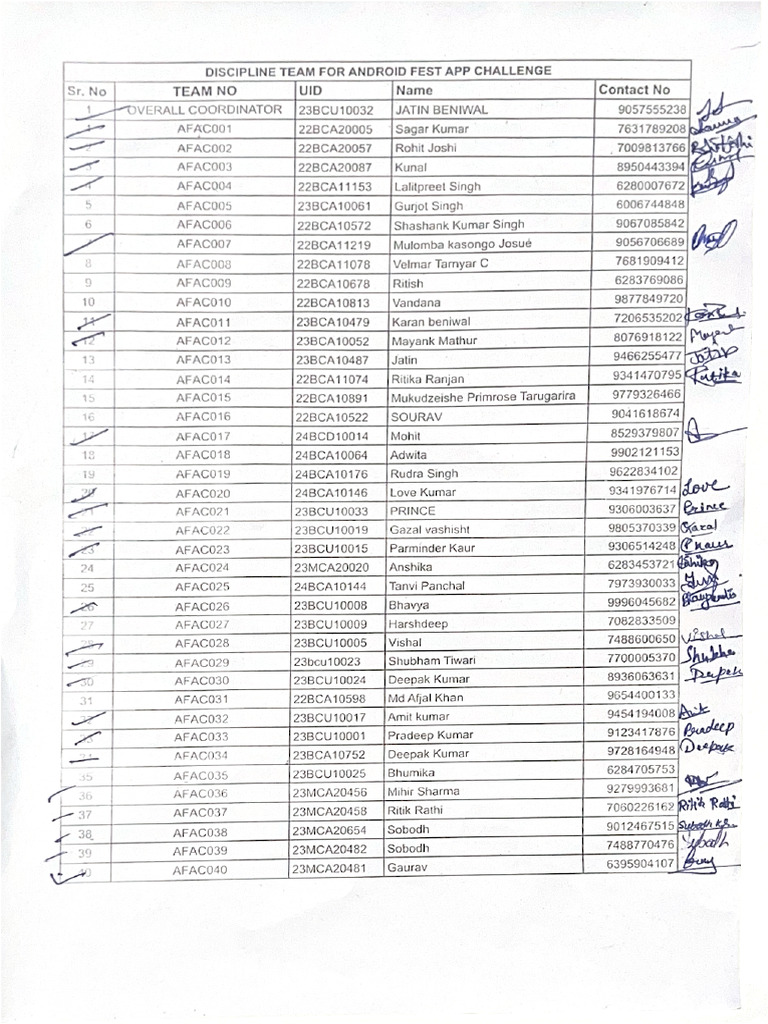 DISCIPLINE TEAM FOR ANDROID FEST APP CHALLENGE
Sr. No TEAM NO UID Name Contact No
1 OVERALL COORDINATOR 23BCU10032 JATIN BENIWAL 9057555238
AFAC001 22BCA20005 Sagar Kumar 7631789208
AFAC002 22BCA20057 Rohit Joshi 7009813766
3 AFAC003 22BCA20087 Kunal 8950443394
4 AFAC004 22BCA11153 Lalitpreet Singh 6280007672
5 AFAC005 23BCA10061 Gurjot Singh 6006744848
6 AFAC006 22BCA10572 Shashank Kumar Singh 9067085842
AFAC007 22BCA11219 Mulomba kasongo Josué 9056706689
8 AFAC008 22BCA11078 Velmar Tamyar C 7681909412
9 AFAC009 22BCA10678 Ritish 6283769086
10 AFAC010 22BCA10813 Vandana 9877849720
11 AFAC011 23BCA10479 Karan beniwal 7206535202
12 AFAC012 23BCA10052 Mayank Mathur 8076918122 Mayank
13 AFAC013 23BCA10487 Jatin 9466255477 Jatin
14 AFAC014 22BCA11074 Ritika Ranjan 9341470795 Ritika
15 AFAC015 22BCA10891 Mukudzeishe Primrose Tarugarira 9779326466
16 AFAC016 22BCA10522 SOURAV 9041618674
17 AFAC017 24BCD10014 Mohit 8529379807
18 AFAC018 24BCA10064 Adwita 9902121153
19 AFAC019 24BCA10176 Rudra Singh 9622834102
20 AFAC020 24BCA10146 Love Kumar 9341976714 Love
AFAC021 23BCU10033 PRINCE 9306003637 Prince
22 AFAC022 23BCU10019 Gazal vashisht 9805370339 Gazal
23 AFAC023 23BCU10015 Parminder Kaur 9306514248 P Kaur
24 AFAC024 23MCA20020 Anshika 6283453721
25 AFAC025 24BCA10144 Tanvi Panchal 7973930033
26 AFAC026 23BCU10008 Bhavya 9996045682
27 AFAC027 23BCU10009 Harshdeep 7082833509
28 AFAC028 23BCU10005 Vishal 7488600650 Vishal
29 AFAC029 23bcu10023 Shubham Tiwari 7700005370
30 AFAC030 23BCU10024 Deepak Kumar 8936063631 Deepak
31 AFAC031 22BCA10598 Md Afjal Khan 9654400133
AFAC032 23BCU10017 Amit kumar 9454194008
AFAC033 23BCU10001 Pradeep Kumar 9123417876 Pradeep
34 AFAC034 23BCA10752 Deepak Kumar 9728164948 Deepak
35 AFAC035 23BCU10025 Bhumika 6284705753
36 AFAC036 23MCA20456 Mihir Sharma 9279993681
37 AFAC037 23MCA20458 Ritik Rathi 7060226162 Ritik Rathi
38 AFAC038 23MCA20654 Sobodh 9012467515
39 AFAC039 23MCA20482 Sobodh 7488770476
40 AFAC040 23MCA20481 Gaurav 6395904107